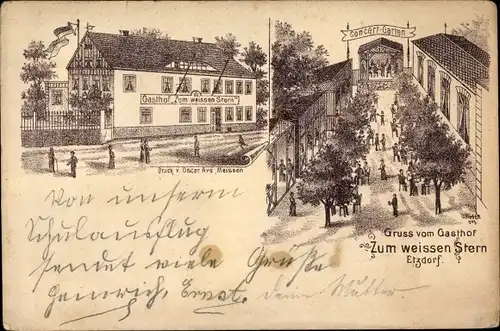 Concert-Garten
Gasthof "Zum weissen Stern"
Druck v. Oscar Ave, Meissen
Gruss vom Gasthof
Zum weissen Stern
Etzdorf.
Von unserm
Schulausflug
sendet viele Grüße
Heinrich, Ernst. deine Mutter.